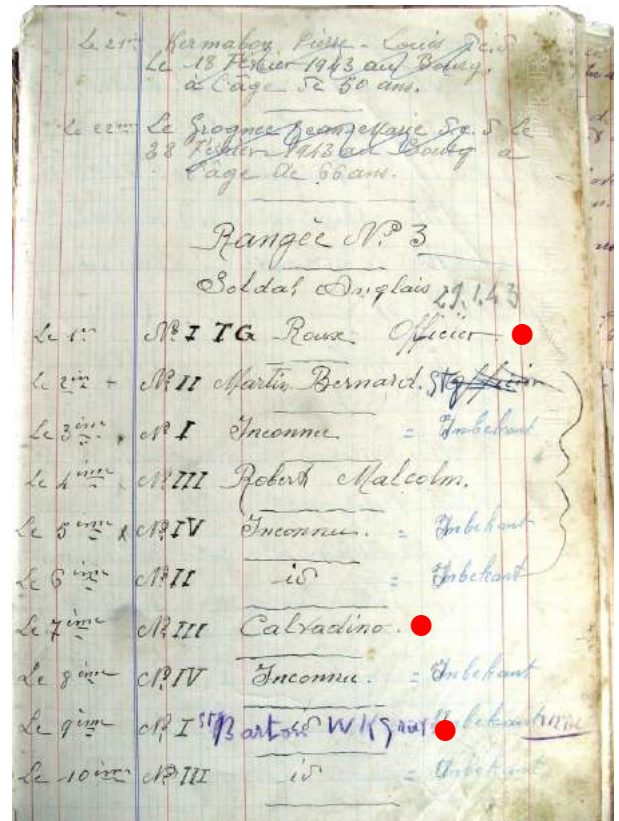 Le 21me Kermabon Pierre - Louis Dcd
Le 18 Février 1943 au Bourg.
à l'âge de 60 ans.
Le 22me Le Grognec Jean Marie Dcd le
28 Février 1943 au Bourg a
l'âge de 66 ans.
Rangée No 3
Soldat Anglais 29.1.43
Le 1er No I TG Roux Officier.
Le 2ème No II Martin Bernard. Sty officier
Le 3ème No I Inconnu. = Inbekant
Le 4ème No III Robert Malcolm.
Le 5ème No IV Inconnu. = Inbekant
Le 6ème No II id = Inbekant
Le 7ème No III Calvadino.
Le 8ème No IV Inconnu. = Inbekant
Le 9ème No I St Bartosi id W K Inbekant
Le 10ème No III id = Inbekant